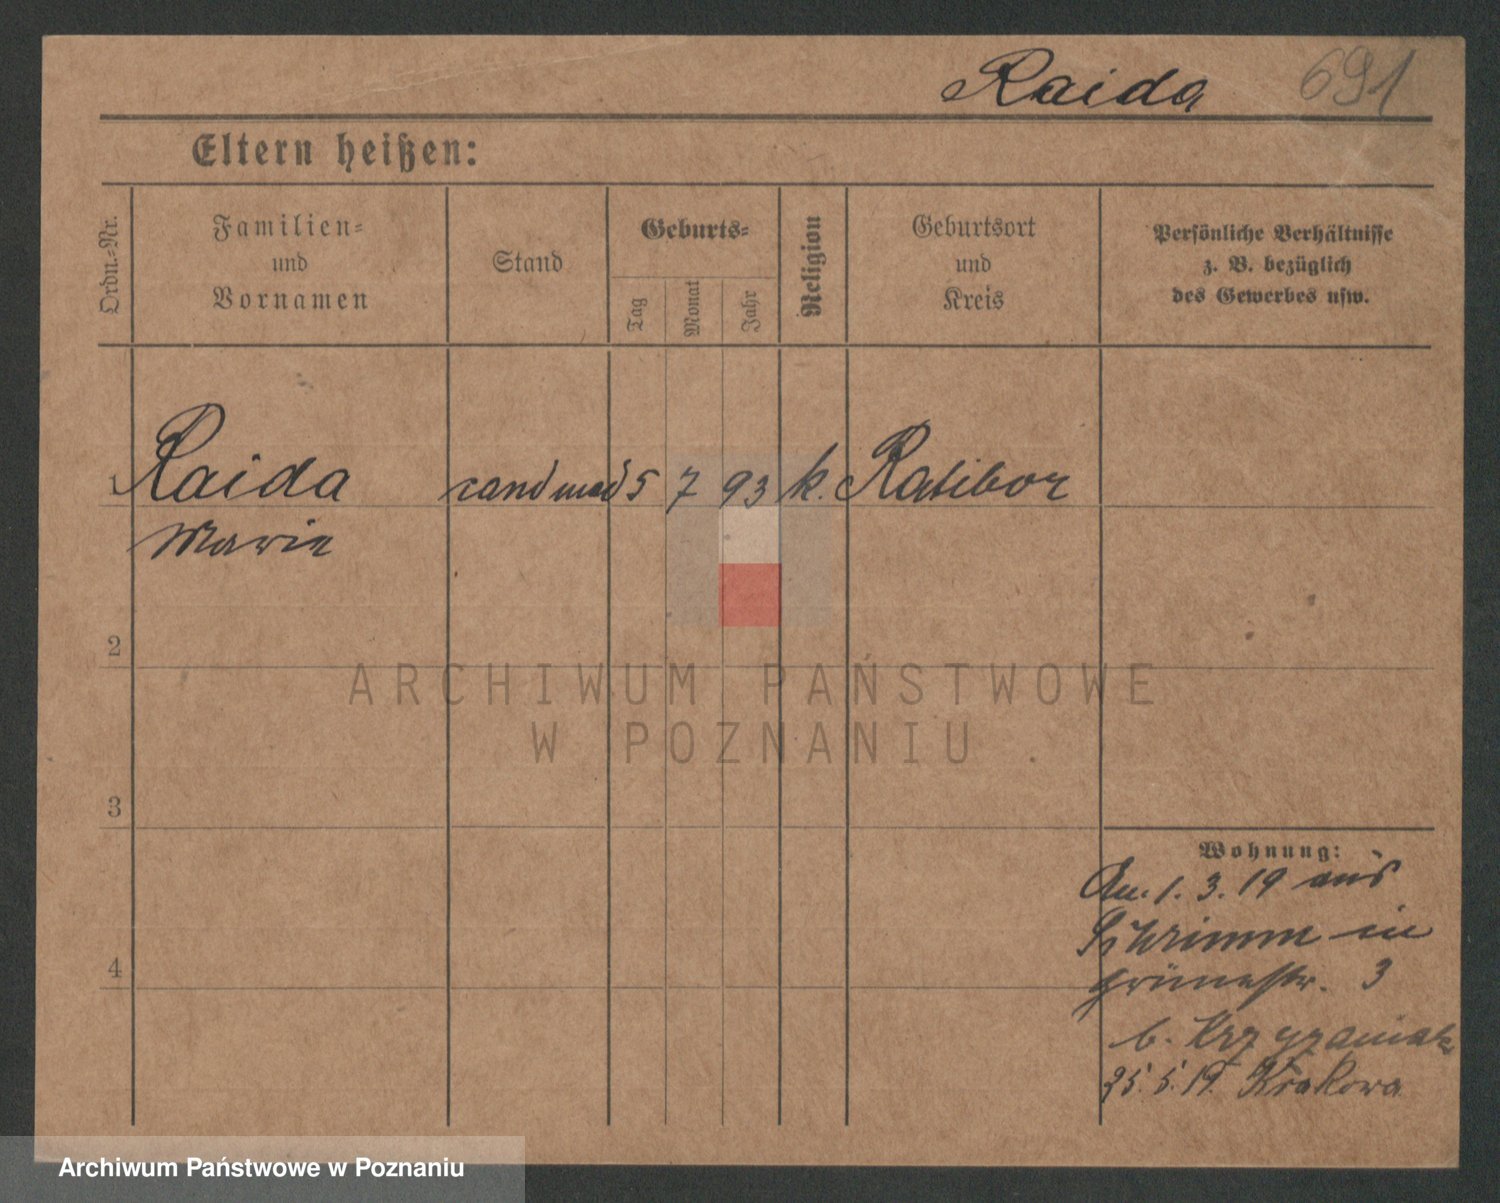 Raida 691
Eltern heißen:
Ordn.-Nr.
Familien-
und
Vornamen
Stand
Geburts-
Tag
Monat
Jahr
Religion
Geburtsort
und
Kreis
Persönliche Verhältnisse
z. B. bezüglich
des Gewerbes usw.
1 Raida cand med 5 7 93 k. Ratibor
Marie
2
ARCHIWUM PAŃSTWOWE
W POZNANIU.
3
Wohnung:
1. 3. 19 aus
Schrimm in
Grünestr. 3
4
b. Krzyzaniak
25. 5. 19. Krakowa
Archiwum Państwowe w Poznaniu